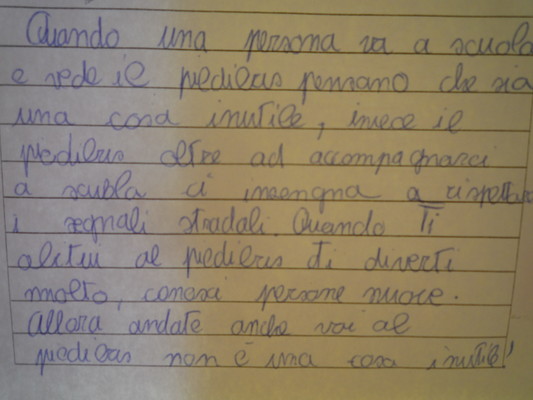 Quando una persona va a scuola
e vede il pedibus pensano che sia
una cosa inutile, invece il
pedibus oltre ad accompagnarci
a scuola ci insegna a rispettare
i segnali stradali. Quando Ti
abitui al pedibus ti diverti
molto, conosci persone nuove.
Allora andate anche voi al
pedibus non è una cosa inutile!